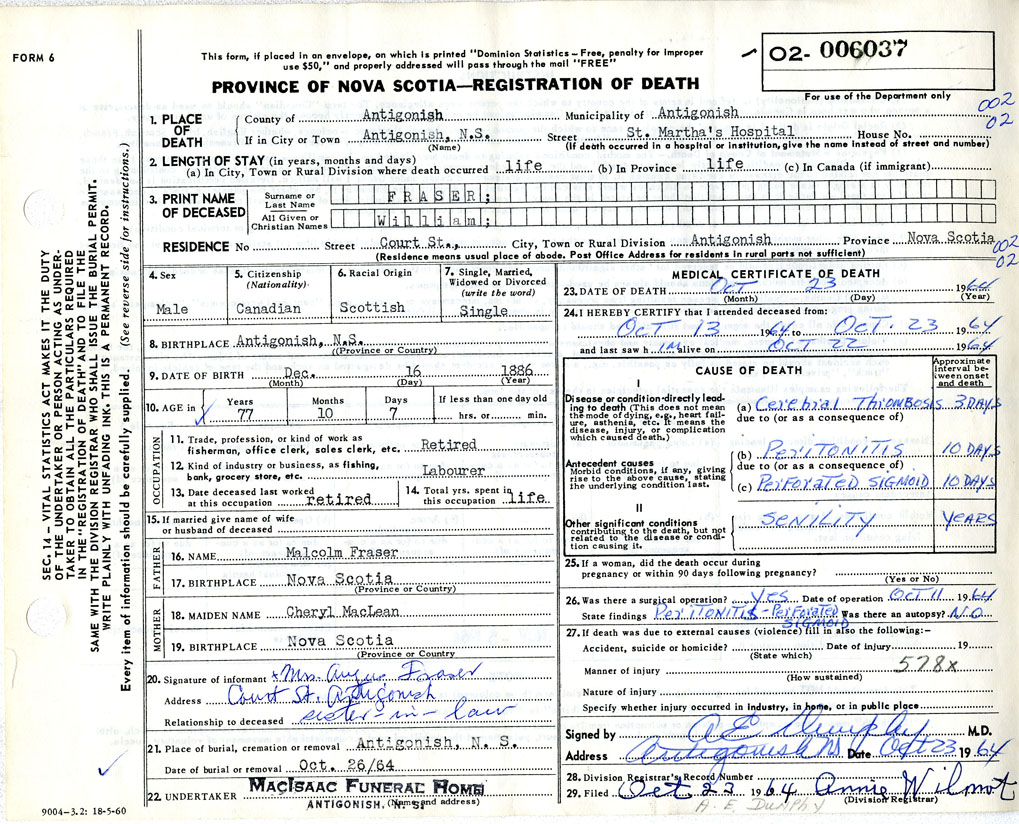 FORM 6
This form, if placed in an envelope, on which is printed "Dominion Statistics – Free, penalty for improper
use $50," and properly addressed will pass through the mail "FREE"
02- 006037
PROVINCE OF NOVA SCOTIA—REGISTRATION OF DEATH
For use of the Department only
002
02
1. PLACE OF DEATH
County of Antigonish Municipality of Antigonish
If in City or Town Antigonish, N.S. Street St. Martha's Hospital House No.
(Name) (If death occurred in a hospital or institution, give the name instead of street and number)
2. LENGTH OF STAY (in years, months and days)
(a) In City, Town or Rural Division where death occurred life (b) In Province life (c) In Canada (if immigrant)
3. PRINT NAME OF DECEASED
Surname or Last Name FRASER;
All Given or Christian Names William;
RESIDENCE No Street Court St., City, Town or Rural Division Antigonish Province Nova Scotia
002
02
(Residence means usual place of abode. Post Office Address for residents in rural parts not sufficient)
4. Sex
Male
5. Citizenship (Nationality)
Canadian
6. Racial Origin
Scottish
7. Single, Married, Widowed or Divorced (write the word)
Single
8. BIRTHPLACE Antigonish, N.S.
(Province or Country)
9. DATE OF BIRTH Dec. 16 1886
(Month) (Day) (Year)
10. AGE in Years Months Days If less than one day old
77 10 7 hrs. or min.
OCCUPATION
11. Trade, profession, or kind of work as
fisherman, office clerk, sales clerk, etc. Retired
12. Kind of industry or business, as fishing,
bank, grocery store, etc. Labourer
13. Date deceased last worked
at this occupation retired
14. Total yrs. spent in
this occupation life
15. If married give name of wife
or husband of deceased
FATHER
16. NAME Malcolm Fraser
17. BIRTHPLACE Nova Scotia
(Province or Country)
MOTHER
18. MAIDEN NAME Cheryl MacLean
19. BIRTHPLACE Nova Scotia
(Province or Country
20. Signature of informant Mrs. Angus Fraser
Address Court St. Antigonish
Relationship to deceased sister-in-law
21. Place of burial, cremation or removal Antigonish, N. S.
Date of burial or removal Oct. 26/64
22. UNDERTAKER MACISAAC FUNERAL HOME
ANTIGONISH, N. S.
(Name and address)
9004-3.2: 18-5-60
MEDICAL CERTIFICATE OF DEATH
23. DATE OF DEATH OCT 23 1964
(Month) (Day) (Year)
24. I HEREBY CERTIFY that I attended deceased from:
OCT 13 1964 to OCT. 23 1964
and last saw h IM alive on OCT 22 1964
CAUSE OF DEATH
Approximate interval between onset and death
I
Disease or condition directly leading to death (This does not mean the mode of dying, e.g., heart failure, asthenia, etc. It means the disease, injury, or complication which caused death.)
(a) Cerebral Thrombosis 3 DAYS
due to (or as a consequence of)
(b) PERITONITIS 10 DAYS
due to (or as a consequence of)
Antecedent causes
Morbid conditions, if any, giving rise to the above cause, stating the underlying condition last.
(c) PERFORATED SIGMOID 10 DAYS
II
Other significant conditions
contributing to the death, but not related to the disease or condition causing it.
SENILITY YEARS
25. If a woman, did the death occur during
pregnancy or within 90 days following pregnancy?
(Yes or No)
26. Was there a surgical operation? YES Date of operation OCT 11 1964
State findings PERITONITIS - PERFORATED SIGMOID Was there an autopsy? NO
27. If death was due to external causes (violence) fill in also the following:–
Accident, suicide or homicide? Date of injury 19
(State which)
Manner of injury 578x
(How sustained)
Nature of injury
Specify whether injury occurred in industry, in home, or in public place
Signed by A E Dunphy M.D.
Address Antigonish NS Date Oct 23 1964
28. Division Registrar's Record Number
29. Filed Oct 23 1964 Annie Wilmot
(Division Registrar)
A. E. DUNPHY
SEC. 14 – VITAL STATISTICS ACT MAKES IT THE DUTY
OF THE UNDERTAKER OR PERSON ACTING AS UNDER-
TAKER TO OBTAIN ALL THE PARTICULARS REQUIRED
IN THE "REGISTRATION OF DEATH" AND TO FILE THE
SAME WITH THE DIVISION REGISTRAR WHO SHALL ISSUE THE BURIAL PERMIT.
WRITE PLAINLY WITH UNFADING INK. THIS IS A PERMANENT RECORD.
Every item of information should be carefully supplied. (See reverse side for instructions.)